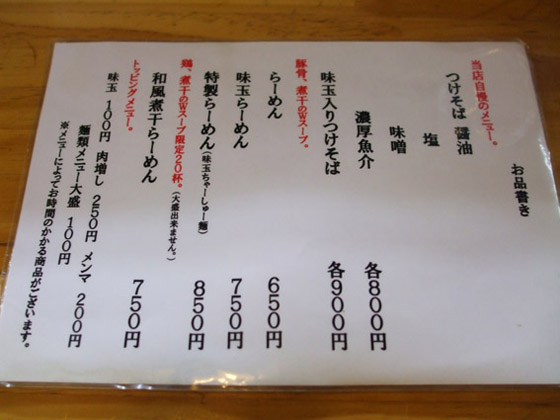 お品書き
当店自慢のメニュー。
つけそば 醤油
塩
味噌
濃厚魚介 各800円
味玉入りつけそば 各900円
豚骨、煮干のWスープ。
らーめん 650円
味玉らーめん 750円
特製らーめん(味玉ちゃーしゅー麺) 850円
鶏、煮干のWスープ限定20杯。(大盛出来ません。)
和風煮干らーめん 750円
トッピングメニュー。
味玉 100円 肉増し 250円 メンマ 200円
麺類メニュー大盛 100円
※メニューによってお時間のかかる商品がございます。